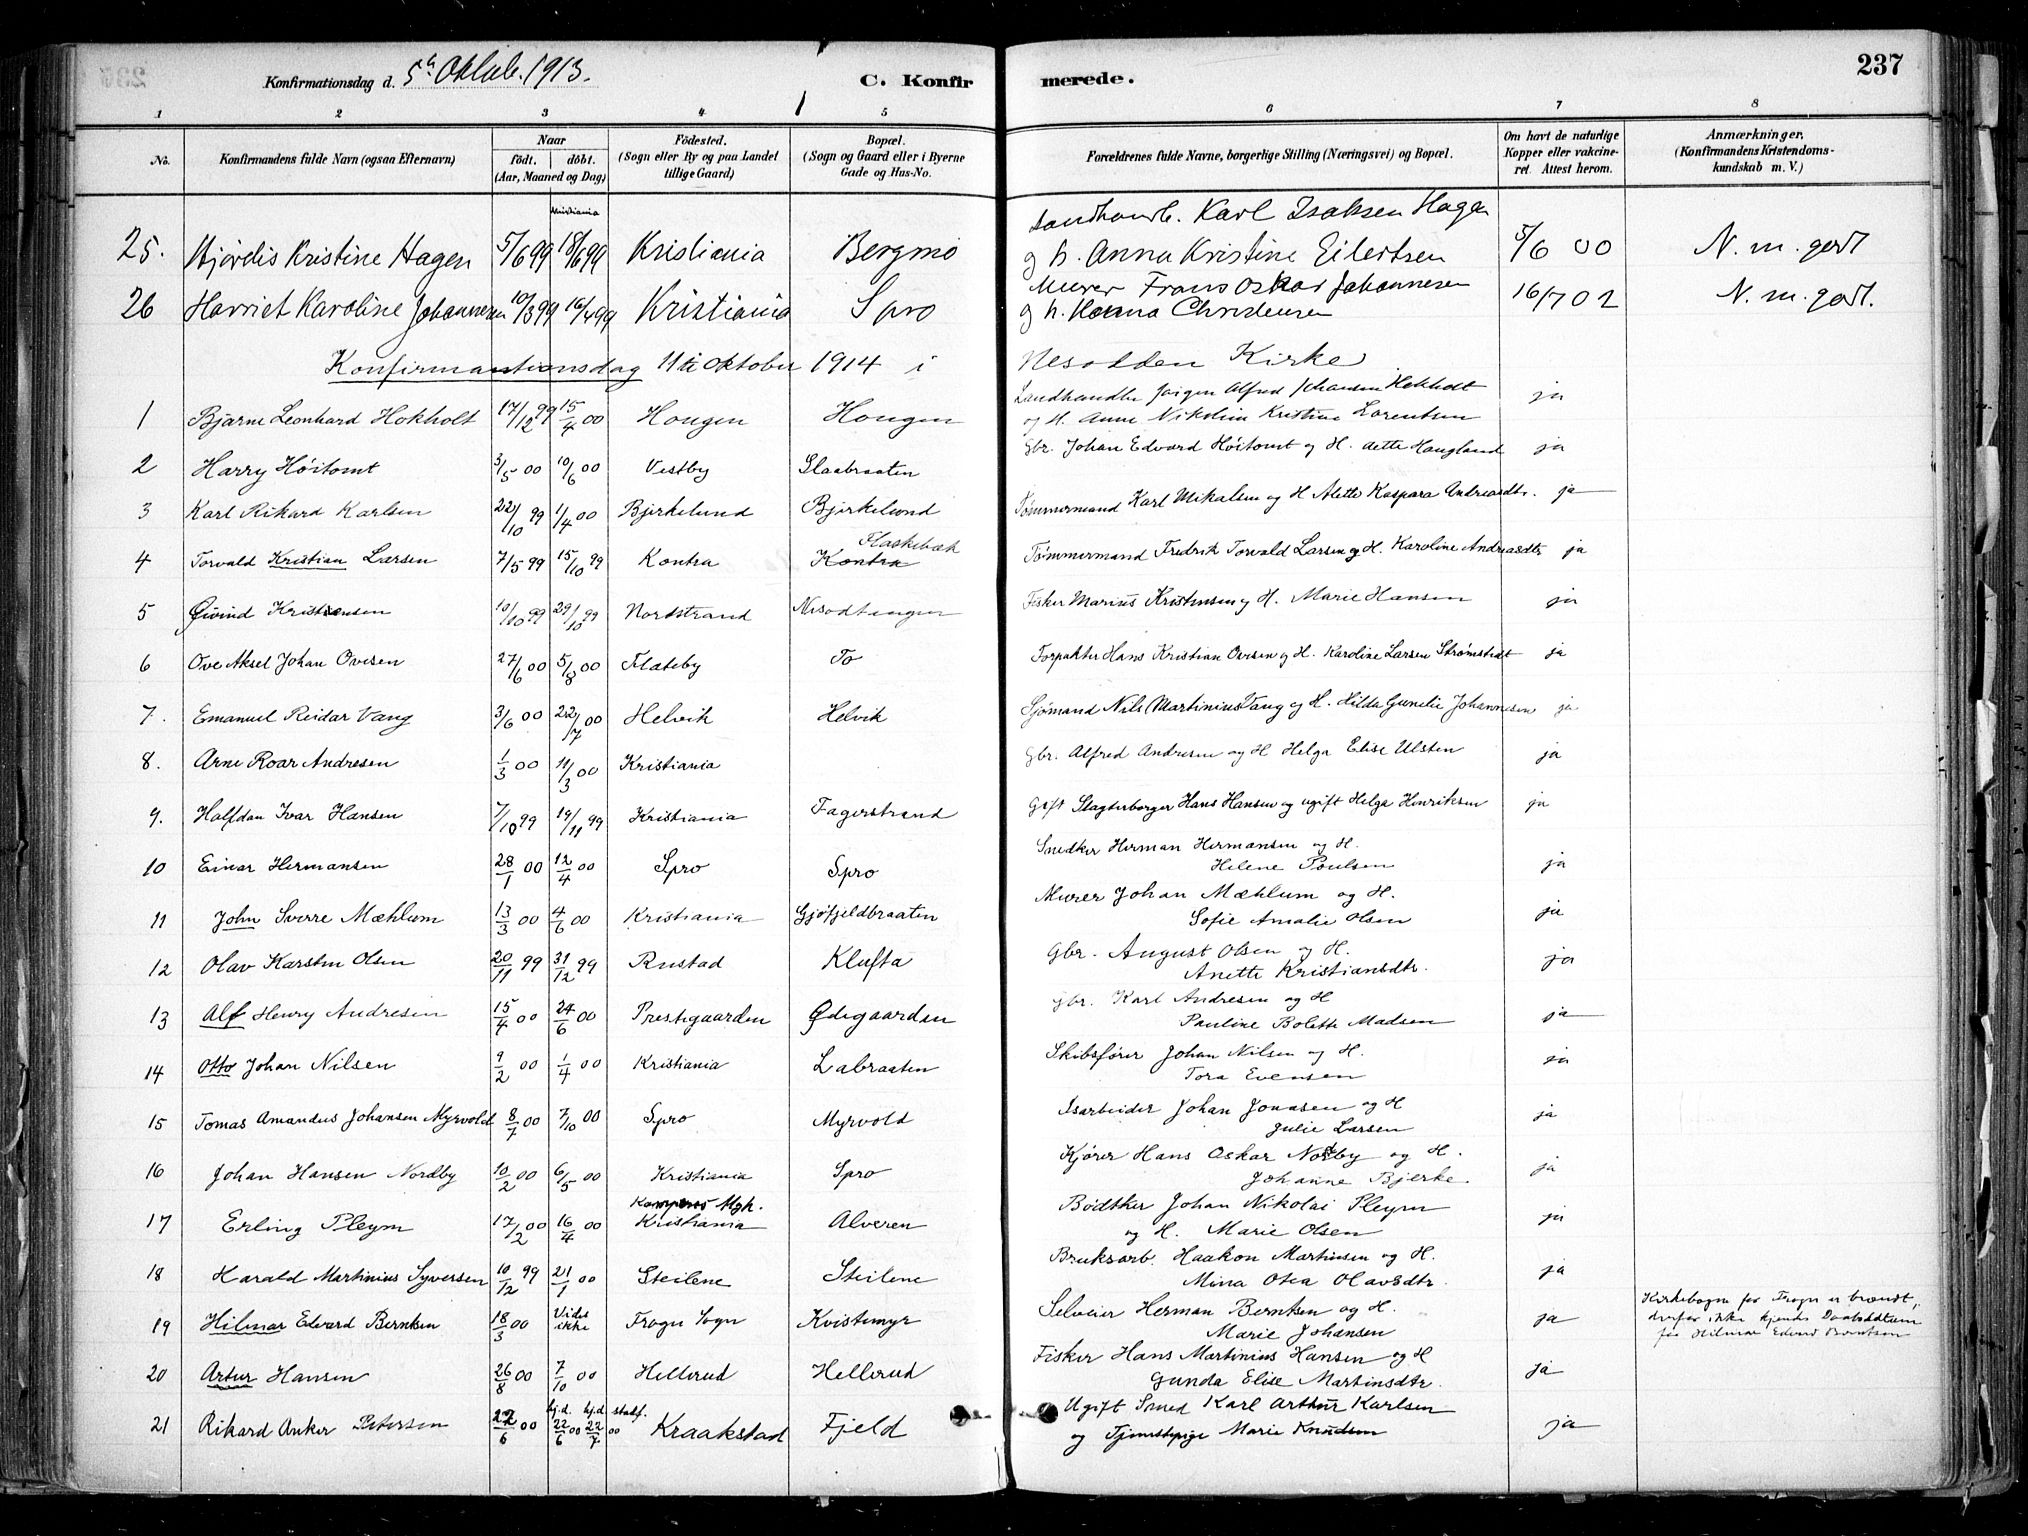 237
Konfirmationsdag d. 5te Oktob. 1913. C. Konfirmerede.
1 2 3 4 5 6 7 8
No. Konfirmandens fulde Navn (ogsaa Efternavn) Naar födt. döbt. (Aar, Maaned og Dag) Födested. (Sogn eller By og paa Landet tillige Gaard) Bopæl. (Sogn og Gaard eller i Byerne Gade og Hus-No. Forældrenes fulde Navne, borgerlige Stilling (Næringsvei) og Bopæl. Om havt de naturlige Kopper eller vakcineret. Attest herom. Anmærkninger. (Konfirmandens Kristendomskundskab m. V.)
Kristiania
Landhandl. Karl Isaksen Hagen
25. Hjørdis Kristine Hagen 5/6 99 18/6 99 Kristiania Bergmo og h. Anna Kristine Eilertsen 5/6 00 N. m. godt
Murer Frans Oskar Johannesen
26 Harriet Karoline Johannesen 10/3 99 16/4 99 Kristiania Spro og h. Hanna Christensen 16/7 02 N. m. godt.
Konfirmantionsdag 11te Oktober 1914 i Nesodden Kirke
Landhandler Jørgen Alfred Johansen Hokholt
1 Bjarne Leonhard Hokholt 17/12 99 15/4 00 Hougen Hougen og H. Anne Nikoline Kristine Lorentsen ja
2 Harry Höitomt 3/5 00 10/6 00 Vestby Slaabraaten Gbr. Johan Edvard Höitomt og H. Aette Haugland ja
3 Karl Rikard Karlsen 22/10 99 1/4 00 Bjerkelund Bjerkelund Tømmermand Karl Mikalsen og H Alette Kaspara Andreasdtr. ja
Flaskebæk
4 Torvald Kristian Larsen 7/5 99 15/10 99 Kontra Kontra Tømmermand Fredrik Torvald Larsen og H. Karoline Andreasdtr ja
5 Øivind Kristensen 10/10 99 29/10 99 Nordstrand Nesodtangen Fisker Marius Kristensen og H. Marie Hansen ja
6 Ove Aksel Johan Ovesen 27/6 00 5/8 00 Flateby To Forpakter Hans Kristian Ovesen og H. Karoline Larsen Strømstedt ja
7. Emanuel Reidar Vang 3/6 00 22/7 00 Helvik Helvik Sjömand Nils Martinius Vang og H. Hilda Gunelie Johannesen ja
8. Arne Roar Andresen 1/3 00 11/3 00 Kristiania Gbr. Alfred Andresen og H Helga Elise Ulsten ja
9. Halfdan Ivar Hansen 7/10 99 19/11 99 Kristiania Fagerstrand Gift Slagterborger Hans Hansen og ugift Helga Henriksen ja
10 Einar Hermansen 28/1 00 12/4 00 Spro Spro Snedker Herman Hermansen og H.
Helene Poulsen ja
11 John Sverre Mæhlum 13/3 00 4/6 00 Kristiania Gjöfjeldbraaten Murer Johan Mæhlum og H.
Sofie Amalie Olsen ja
12 Olav Karsten Olsen 20/11 99 31/12 99 Rustad Klufta Gbr. August Olsen og H.
Anette Kristiansdtr. ja
13 Alf Henry Andresen 15/4 00 24/6 00 Prestegaarden Ødegaarden Gbr. Karl Andresen og H
Pauline Bolette Madsen ja
14 Otto Johan Nilsen 9/2 00 1/4 00 Kristiania Labraaten Skibsfører Johan Nilsen og H.
Tora Evensen ja
15 Tomas Amandus Johansen Myrvold 8/7 00 7/10 00 Spro Myrvold Isarbeider Johan Jonasen og H
Julie Larsen ja
16 Johan Hansen Nordby 10/2 00 6/5 00 Kristiania Spro Kjører Hans Oskar Nordby og H.
Johanne Bjerke. ja
Kampens Mgh.
17 Erling Pleym 17/2 00 16/4 00 Kristiania Alveren Bødtker Johan Nikolai Pleym
og H. Marie Olsen ja
18 Harald Martinius Syversen 10/12 99 21/1 00 Steilene Steilene Bruksarb. Haakon Martinsen og H.
Mina Otea Olavsdtr. ja
19 Hilmar Edvard Berntsen 18/3 00 Vides ikke Frogn Sogn Kvistemyr Selveier Herman Berntsen og H.
Marie Johansen ja Kirkebogen for Frogn er brændt,
derfor ikke kjendt Daabsdatum
for Hilmar Edvard Berntsen
20 Artur Hansen 26/8 00 7/10 00 Hellerud Hellerud Fisker Hans Martinius Hansen og H
Gunda Elise Martinsdtr. ja
21 Rikard Anker Petersen 22/6 00 hj.d. 22/6 00 hj.d. stadf. 22/7 00 Kraakstad Fjeld Ugift Smed Karl Arthur Karlsen
og Tjenestepige Marie Knudsen ja